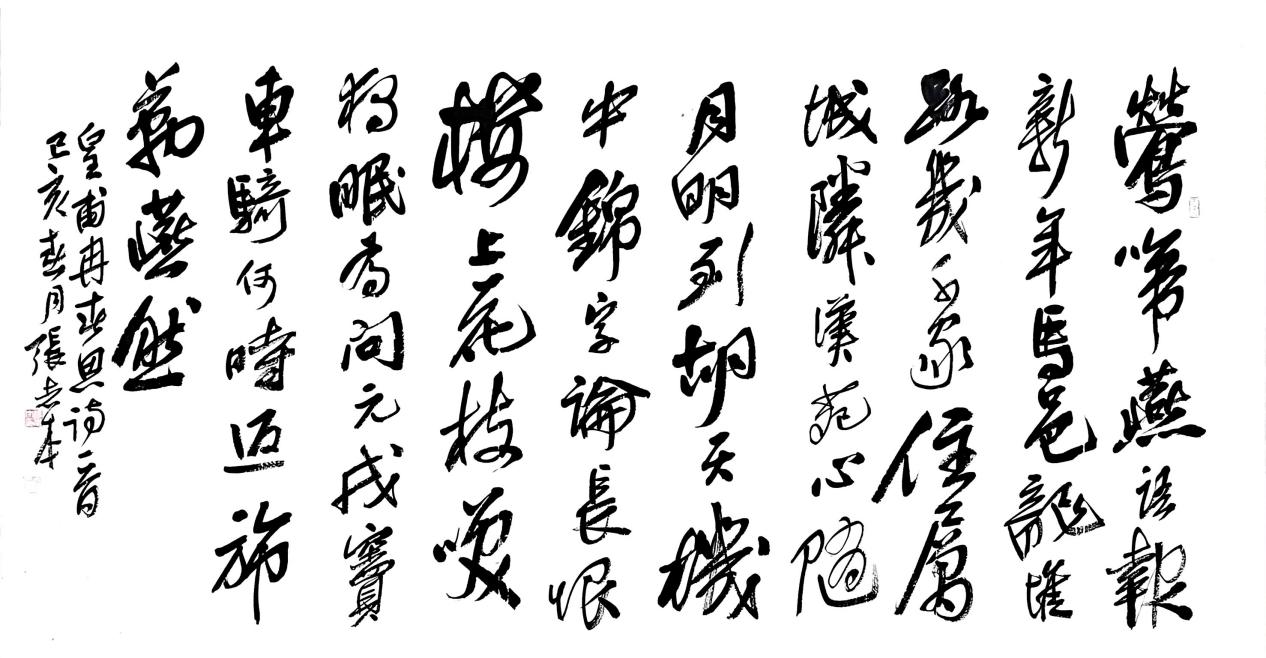 鶯啼燕語報
新年馬邑龍堆
路幾千家住層
城隣漢苑心隨
月明到胡天機
中錦字論長恨
樓上花枝咲
獨眠為問元戎竇
車騎何時返旆
勒燕然
皇甫冉春思詩一首
己亥春月張志本